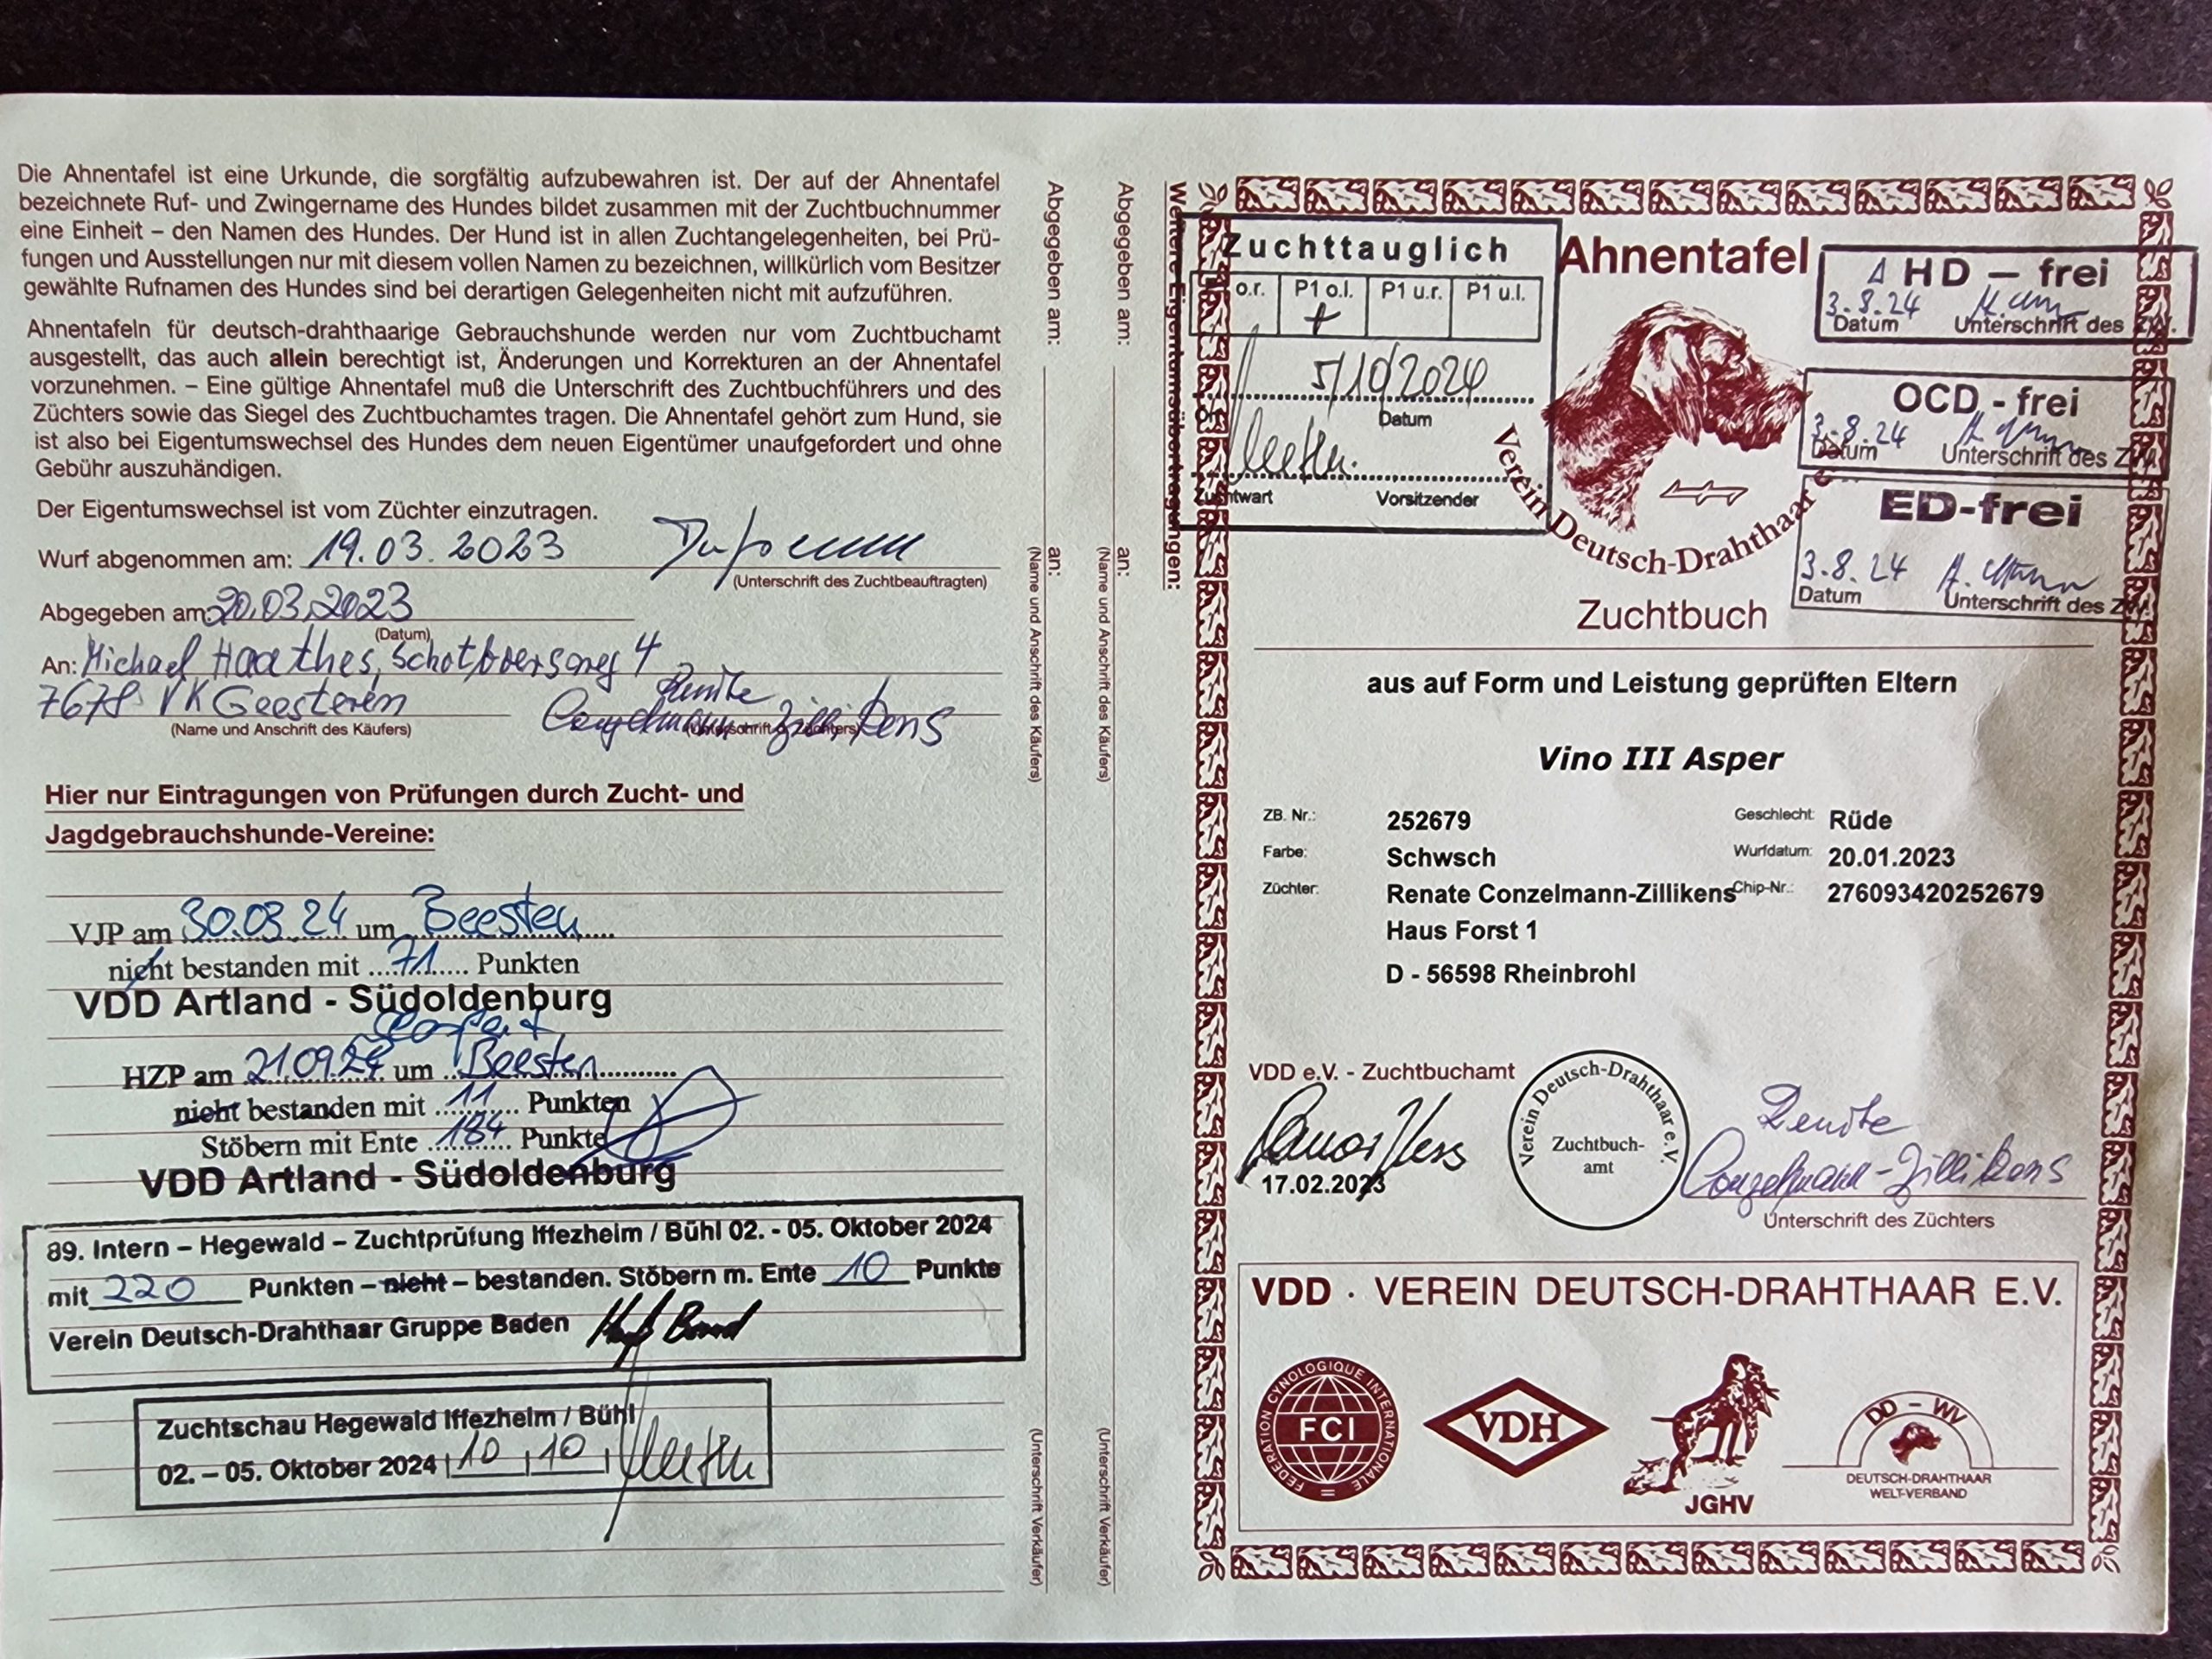 Die Ahnentafel ist eine Urkunde, die sorgfältig aufzubewahren ist. Der auf der Ahnentafel
bezeichnete Ruf- und Zwingername des Hundes bildet zusammen mit der Zuchtbuchnummer
eine Einheit – den Namen des Hundes. Der Hund ist in allen Zuchtangelegenheiten, bei Prü-
fungen und Ausstellungen nur mit diesem vollen Namen zu bezeichnen, willkürlich vom Besitzer
gewählte Rufnamen des Hundes sind bei derartigen Gelegenheiten nicht mit aufzuführen.
Ahnentafeln für deutsch-drahthaarige Gebrauchshunde werden nur vom Zuchtbuchamt
ausgestellt, das auch allein berechtigt ist, Änderungen und Korrekturen an der Ahnentafel
vorzunehmen. – Eine gültige Ahnentafel muß die Unterschrift des Zuchtbuchführers und des
Züchters sowie das Siegel des Zuchtbuchamtes tragen. Die Ahnentafel gehört zum Hund, sie
ist also bei Eigentumswechsel des Hundes dem neuen Eigentümer unaufgefordert und ohne
Gebühr auszuhändigen.
Der Eigentumswechsel ist vom Züchter einzutragen.
Wurf abgenommen am: 19.03.2023
(Unterschrift des Zuchtbeauftragten)
Abgegeben am: 20.03.2023
(Datum)
An: Michael Haathes, 4
7678 VK Geesteren Renate
Conzelmann-Zillikens
(Name und Anschrift des Käufers) (Unterschrift d. Züchters)
Hier nur Eintragungen von Prüfungen durch Zucht- und
Jagdgebrauchshunde-Vereine:
VJP am 30.03.24 um Beesten
nicht bestanden mit 71 Punkten
VDD Artland - Südoldenburg
HZP am 21.09.24 um Beesten
nicht bestanden mit 11 Punkten
Stöbern mit Ente 184 Punkte
VDD Artland - Südoldenburg
89. Intern – Hegewald – Zuchtprüfung Iffezheim / Bühl 02. - 05. Oktober 2024
mit 220 Punkten – nicht – bestanden. Stöbern m. Ente 10 Punkte
Verein Deutsch-Drahthaar Gruppe Baden
Zuchtschau Hegewald Iffezheim / Bühl
02. – 05. Oktober 2024 10 10
Abgegeben am: an:
(Name und Anschrift des Käufers) (Unterschrift Verkäufer)
Abgegeben am: an:
(Name und Anschrift des Käufers) (Unterschrift Verkäufer)
Weitere Eigentumsübertragungen:
Zuchttauglich
o.r. P1 o.l. P1 u.r. P1 u.l.
+
5/10/2024
Ort Datum
Zuchtwart Vorsitzender
Ahnentafel
Verein Deutsch-Drahthaar e.
Zuchtbuch
HD – frei
3.8.24
Datum Unterschrift des ZW.
OCD - frei
3.8.24
Datum Unterschrift des ZW.
ED-frei
3.8.24
Datum Unterschrift des ZW.
aus auf Form und Leistung geprüften Eltern
Vino III Asper
ZB. Nr.: 252679 Geschlecht: Rüde
Farbe: Schwsch Wurfdatum: 20.01.2023
Züchter: Renate Conzelmann-Zillikens Chip-Nr.: 276093420252679
Haus Forst 1
D - 56598 Rheinbrohl
VDD e.V. - Zuchtbuchamt
17.02.2023
Verein Deutsch-Drahthaar e. V.
Zuchtbuch-
amt
Renate
Conzelmann-Zillikens
Unterschrift des Züchters
VDD · VEREIN DEUTSCH-DRAHTHAAR E.V.
FEDERATION CYNOLOGIQUE INTERNATIONALE
FCI
VDH
JGHV
DD - WV
DEUTSCH-DRAHTHAAR
WELT-VERBAND